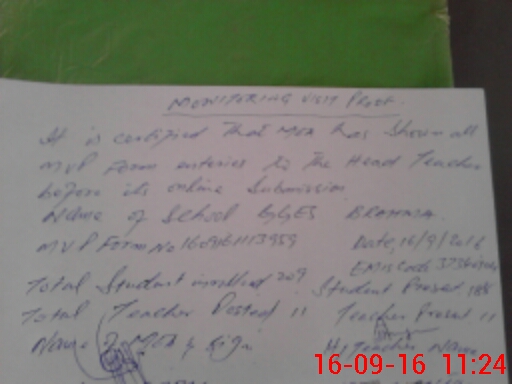 MONITORING VISIT PROOF.
It is certified that MEA has shown all
MVP Form enteries to the Head Teacher
before its online Submission
Name of School GGES
MVP Form No Date, 16/9/2016
EMIS Code
Total Student enrolled 209 Student Present 188
Total Teacher Posted 11 Teacher Present 11
Name of MEA & Sign H/Teacher Name
16-09-16 11:24